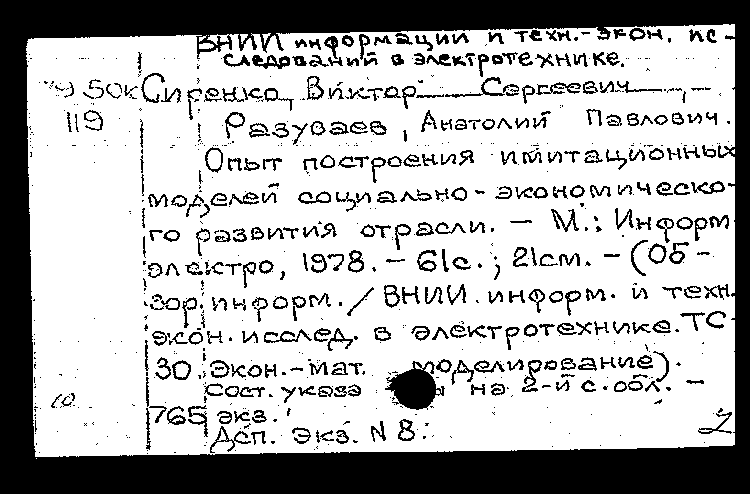 ВНИИ информации и техн.-экон. ис-
следований в электротехнике.
Сиренко, Виктор Сергеевич,
119 Разуваев, Анатолий Павлович.
Опыт построения имитационных
моделей социально-экономическо-
го развития отрасли. — М.: Информ
электро, 1978. — 61с.; 21см. — (Об-
зор. информ. / ВНИИ информ. и техн.
экон. исслед. в электротехнике. ТС-
30. Экон.-мат. моделирование).
Сост. указа на 2-й с. обл. —
10
765 экз.
Дсп. Экз. N 8. 2